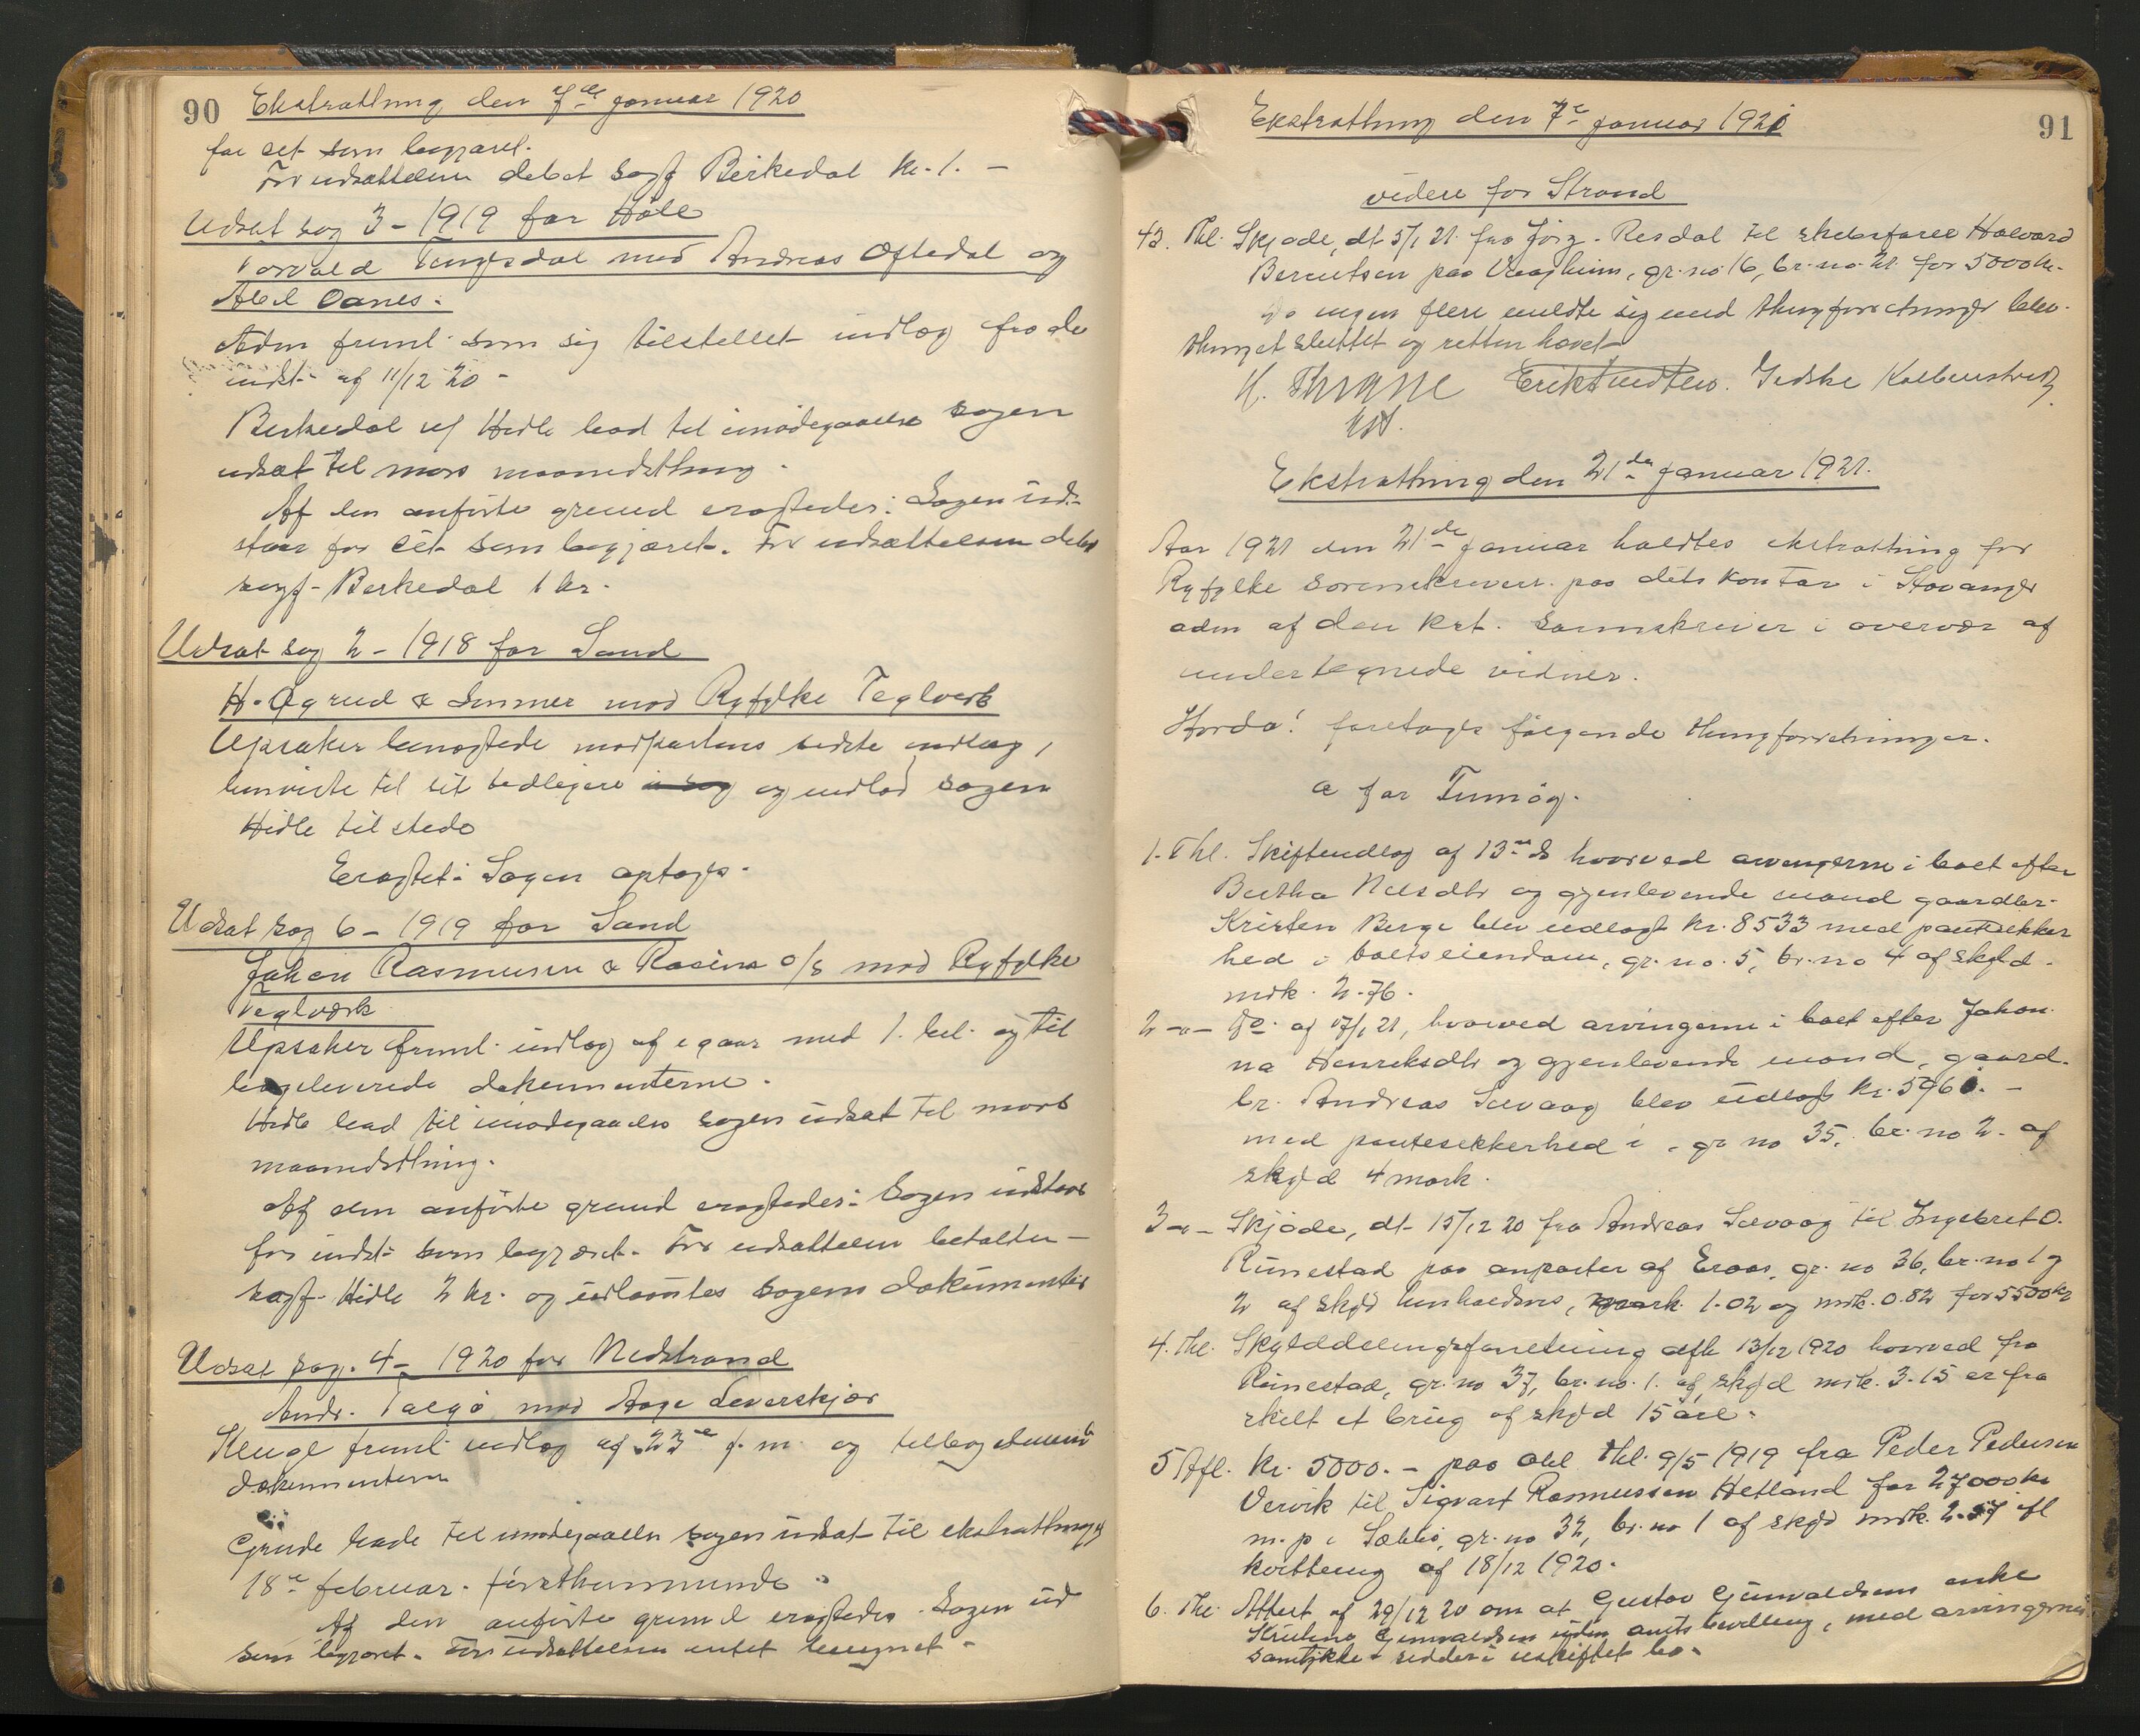 90 Ekstrathing den 7de januar 1920
for det som begjæret.
For udsættelsen debet sagf Birkedal kr. 1. –
Udsat sag 3 – 1919 for Høle
Torvald Tengesdal mod Andreas Oftedal og
Abel Oanes.
Adm freml. som sig tilstillet indlæg fra de
indst. af 11/12 20 –
Birkedal v/ Hidle bad til imødegaaelse sagen
udsat til mars maanedsthing.
Af den anførte grund eragtedes: Sagen ud-
staar for det som begjæret. For udsættelsen debet
sagf. Birkedal 1 kr.
Udsat sag 2 – 1918 for Sand
H. Øgrud & Sønner mod Ryfylke Teglverk
Upsaker benægtede modpartens sidste indlæg,
henviste til sit tidligere og indlod sagen
Hidle tilstede
Eragtet: Sagen optages.
Udsat sag 6 – 1919 for Sand
Johan Rasmussen & Racine A/S mod Ryfylke
Teglværk
Upsaker freml. indlæg af igaar med 1. bil. og til
bageleverede dokumenterne.
Hidle bad til imødegaaelse sagen udsat til mars
maanedsthing.
Af den anførte grund eragtedes: Sagen udstaar
for indst. som begjæret. For udsættelsen betalte
sagf. Hidle 2 kr. og udlaantes sagens dokumenter
Udsat sag. 4 – 1920 for Nedstrand
Andr. Talgø mod Aage Leverskjær
Kluge freml. indlæg af 23de f. m. og
dokumenterne
Grude bade til imødegaaelse sagen udsat til ekstrathinget
18de februar. førstkommende.
Af den anførte grund eragtedes. Sagen ud
som begjæret. For udsættelsen intet beregnet –
Ekstrathing den 7de januar 1921 91
videre for Strand
43. Thl. Skjøde, dt 5/1 21 fra Jörg. Resdal til skibsfører Halvard
Berentsen paa Vaagheim, gr. no 16, br. no 21 for 5000 kr.
Da ingen flere meldte sig med thingforretninger blev
thinget sluttet og retten hævet
H. Thrane Erik Knudsen. Gidske Kolbenstvedt
Kst.
Ekstrathing den 21de januar 1921.
Aar 1921 den 21de januar holdtes ekstrathing for
Ryfylke sorenskriveri paa dets kontor i Stavanger
adm af den kst. sorenskriver i overvær af
undertegnede vidner.
Hvorda! foretoges følgende thingforretninger.
a for Finnøy.
1. Thl. Skifteudlæg af 13de ds hvorved arvingerne i boet efter
Bertha Nilsdtr og gjenlevende mand gaardbr.
Kristen Berge blev udlagt kr. 8533 med pantsikker
hed i boets eiendom, gr. no. 5, br. no 4 af skyld
mrk. 2.76.
2 –"– Do. af 17/1 21, hvorved arvingerne i boet efter Johan
na Henriksdtr og gjenlevende mand, gaard.
br. Andreas Sævaag blev udlagt kr. 5960. –
med pantesikkerhed i gr no 35, br. no 2. af
skyld 4 mark.
3 –"– Skjøde, dt 15/12 20 fra Andreas Sævaag til Ingebret O.
Runestad paa anparter af Eraas, gr. no 36, br. no 1 og
2 af skyld henholdsvis, mrk. 1.02 og mrk. 0.82 for 5500 kr
4. Thl. Skylddelingsforretning afh 13/12 1920 hvorved fra
Runestad, gr. no 37, br. no. 1. af skyld mrk. 3.15 er fra
skilt et brug af skyld 15 øre.
5 Afl. kr. 5000. – paa obl thl. 9/5 1919 fra Peder Pedersen
Vervik til Sigvart Rasmussen Hetland for 27000 kr
m. p i Sæbbø, gr. no 32, br. no 1 af skyld mrk. 2.57 ifl
kvittering af 18/12 1920.
6. Thl. Attest af 29/12 20 om at Gustav Gunvaldsens enke
Kristine Gunvaldsen uden amts bevilling, med arvingernes
samtykke sidder i uskiftet bo.